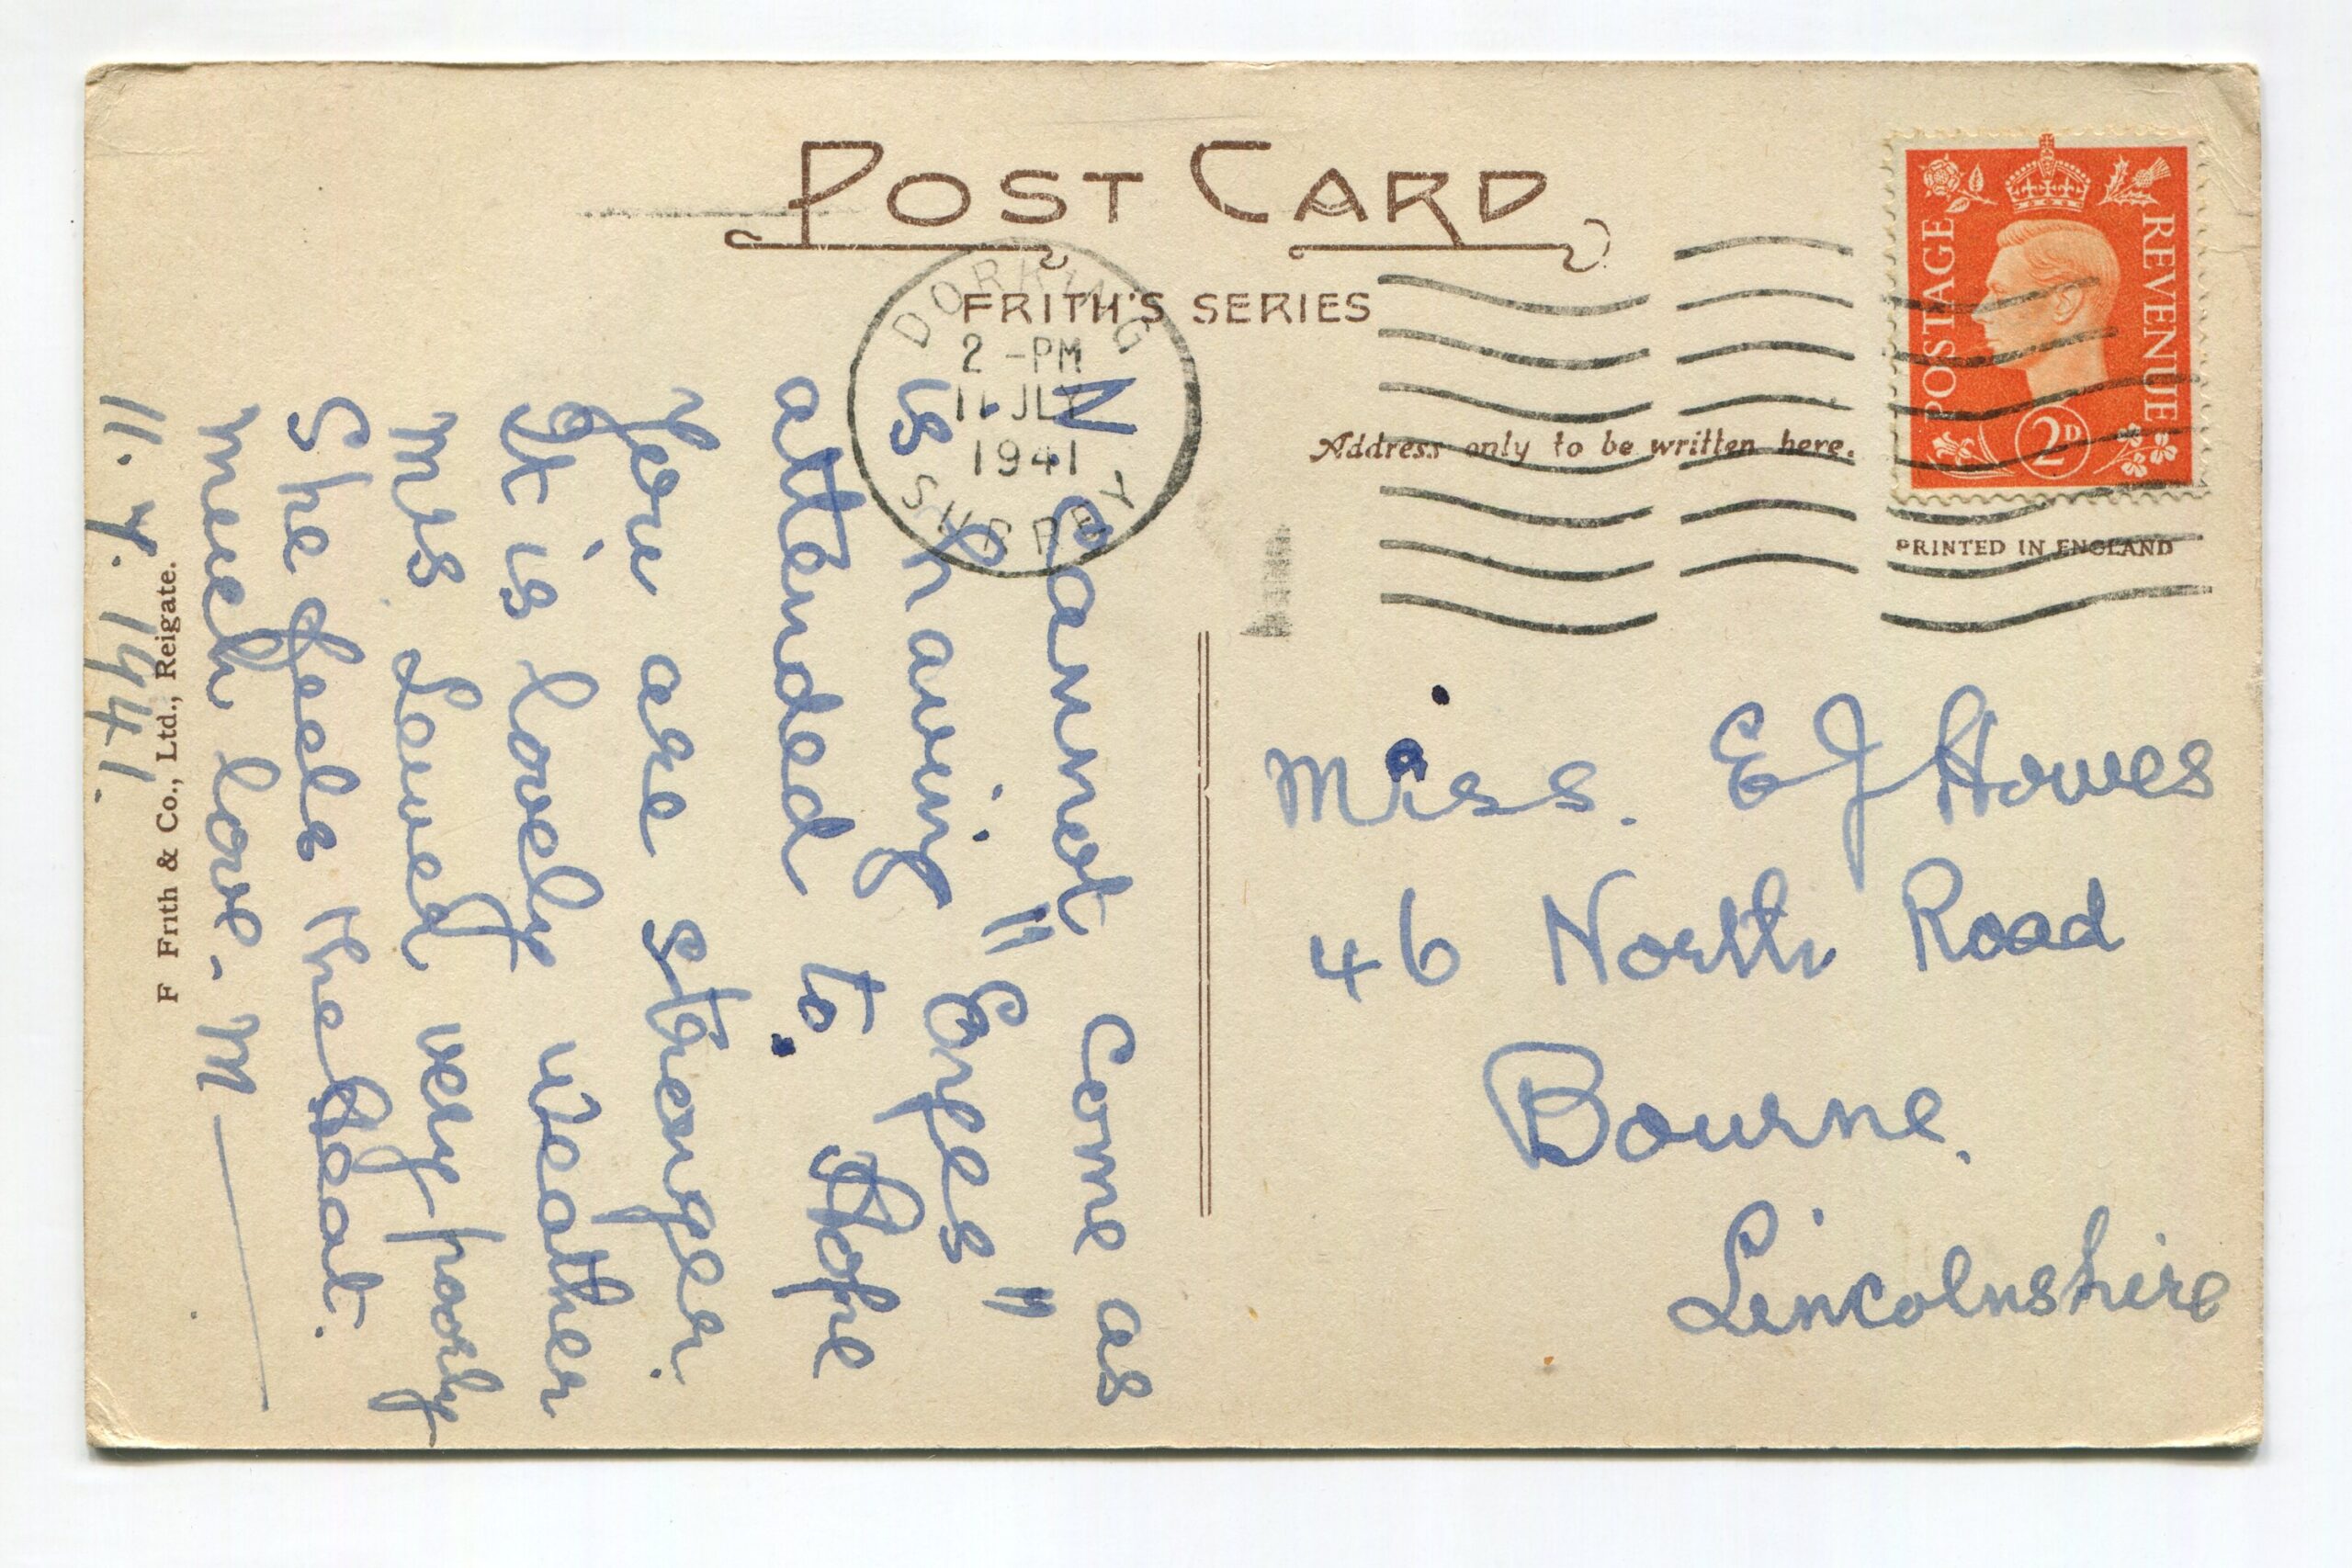 POST CARD
FRITH'S SERIES
DORKING
SURREY
2 - PM
11 JLY
1941
POSTAGE
REVENUE
2D
Address only to be written here.
PRINTED IN ENGLAND
Miss. E J Howes
46 North Road
Bourne.
Lincolnshire
N. Cannot come as
is having "Eyes"
attended to. Hope
You are stronger.
It is lovely weather
Mrs very poorly
She feels the heat.
Much love - M
11. 7. 1941.
F Frith & Co., Ltd., Reigate.